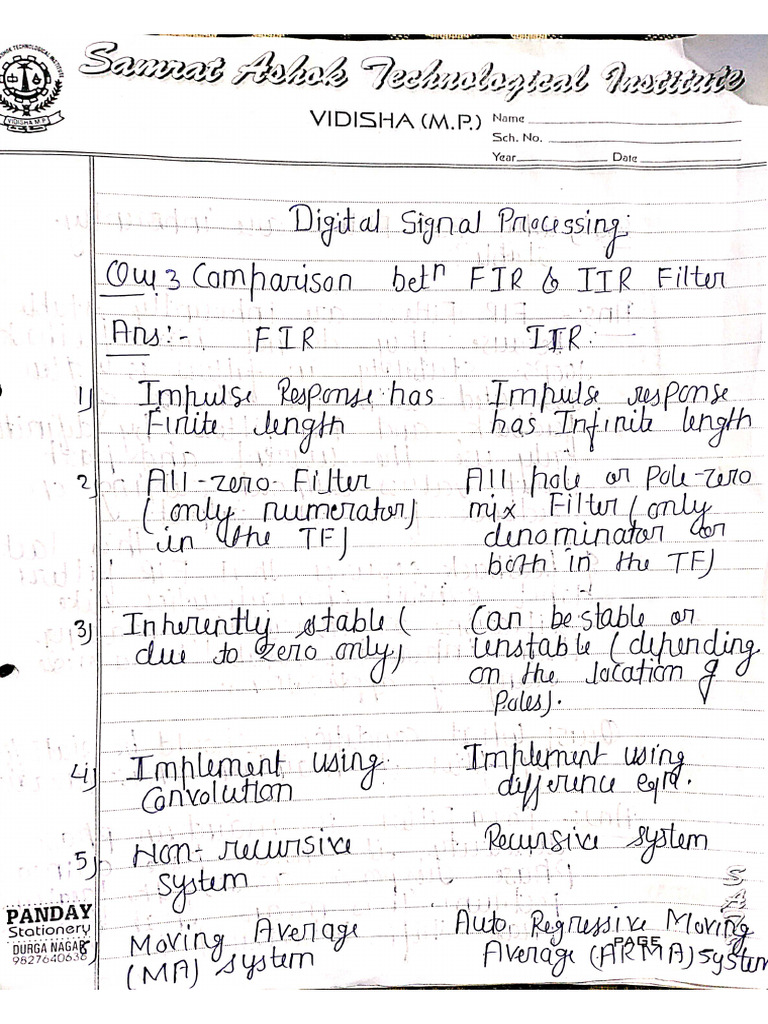 ASHOK TECHNOLOGICAL INSTITUTE
VIDISHA M.P.
Samrat Ashok Technological Institute
VIDISHA (M.P.)
Name
Sch. No.
Year Date
Digital Signal Processing:
Que 3 Comparison betn FIR & IIR Filter
Ans:- FIR IIR:
1) Impulse Response has Impulse response
Finite length has Infinite length
2) All-zero-Filter All pole or Pole-zero
(only numerator) mix Filter (only
in the TF) denominator or
both in the TF)
3) Inherently stable ( Can be stable or
due to zero only) Unstable (depending
on the location of
Poles).
4) Implement using Implement using
Convolution difference eqn.
5) Non-recursive Recursive system
system
Moving Average Auto Regressive Moving
(MA) system Average (ARMA) System
PANDAY
Stationery
DURGA NAGAR
9827640636
PAGE